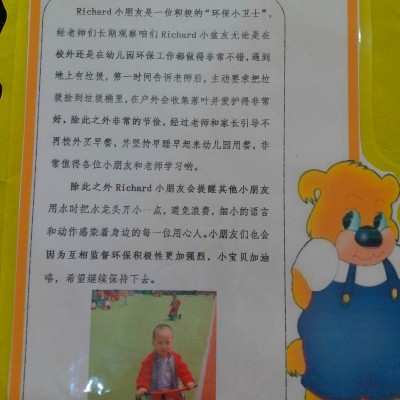 Richard小朋友是一位积极的“环保小卫士”，
经老师们长期观察咱们Richard小盆友无论是在
校外还是在幼儿园环保工作都做得非常不错，遇到
地上有垃圾，第一时间告诉老师后，主动要求把垃
圾捡到垃圾桶里，在户外会收集落叶并爱护得非常
好，除此之外非常的节俭，经过老师和家长引导不
再校外买早餐，并坚持早睡早起来幼儿园用餐，非
常值得各位小朋友和老师学习哟。
除此之外Richard小朋友会提醒其他小朋友
用水时把水龙头开小一点，避免浪费，细小的语言
和动作感染着身边的每一位用心人。小朋友们也会
因为互相监督环保积极性更加强烈，小宝贝加油
咯，希望继续保持下去。